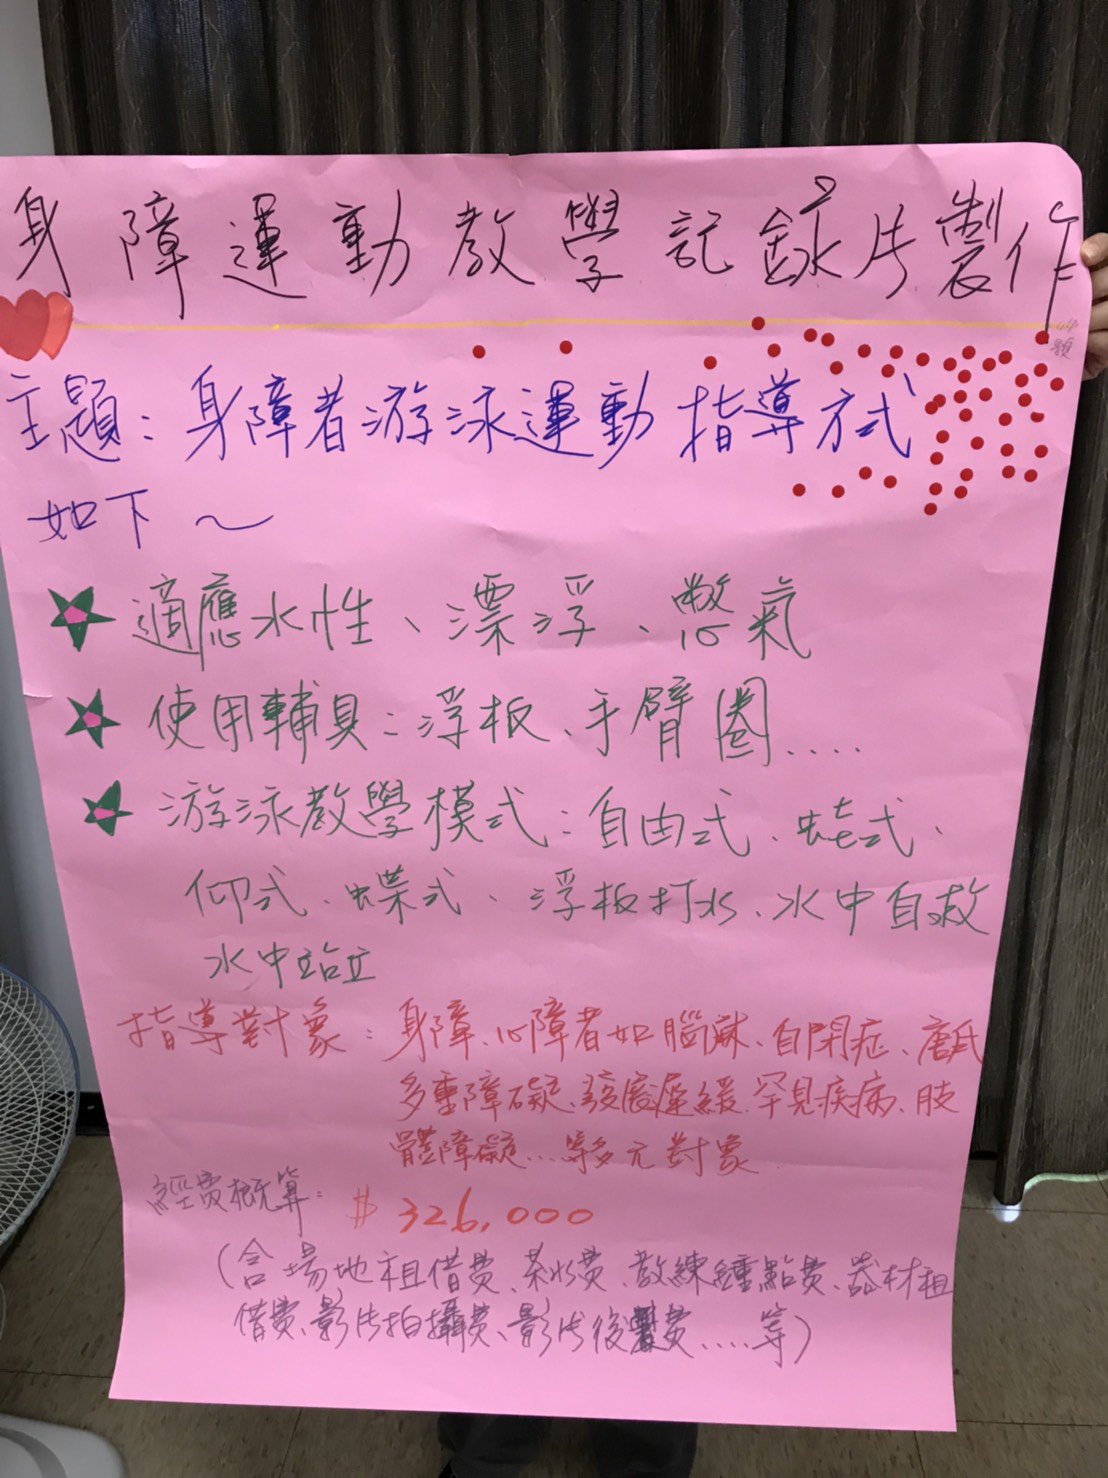 身障運動教學記錄片製作
44
顆
主題：身障者游泳運動指導方式
如下～
適應水性、漂浮、憋氣
使用輔具：浮板、手臂圈....
游泳教學模式：自由式、蛙式、
仰式、蝶式、浮板打水、水中自救
水中站立
指導對象：身障、心障者如腦麻、自閉症、唐氏
多重障礙、發展遲緩、罕見疾病、肢
體障礙...等多元對象
經費概算：$326,000
(含場地租借費、茶水費、教練鐘點費、器材租
借費、影片拍攝費、影片後製費....等)